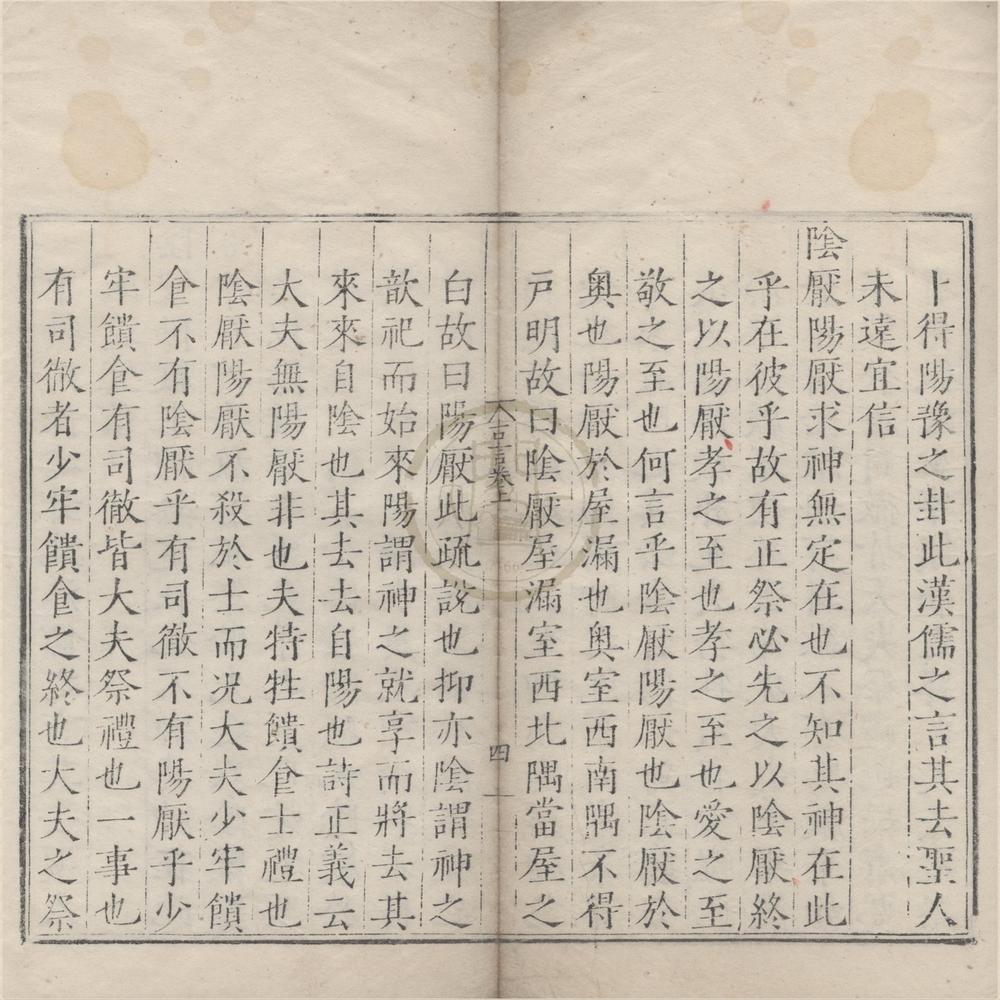 卜得陽豫之卦此漢儒之言其去聖人
未遠宜信
陰厭陽厭求神無定在也不知其神在此
乎在彼乎故有正祭必先之以陰厭終
之以陽厭孝之至也孝之至也愛之至
敬之至也何言乎陰厭陽厭也陰厭於
奥也陽厭於屋漏也奥室西南隅不得
戸明故曰陰厭屋漏室西北隅當屋之
言卷上
四
白故曰陽厭此疏說也抑亦陰謂神之
歆祀而始來陽謂神之就享而將去其
來來自陰也其去去自陽也詩正義云
大夫無陽厭非也夫特牲饋食士禮也
陰厭陽厭不殺於士而况大夫少牢饋
食不有陰厭乎有司徹不有陽厭乎少
牢饋食有司徹皆大夫祭禮也一事也
有司徹者少牢饋食之終也大夫之祭